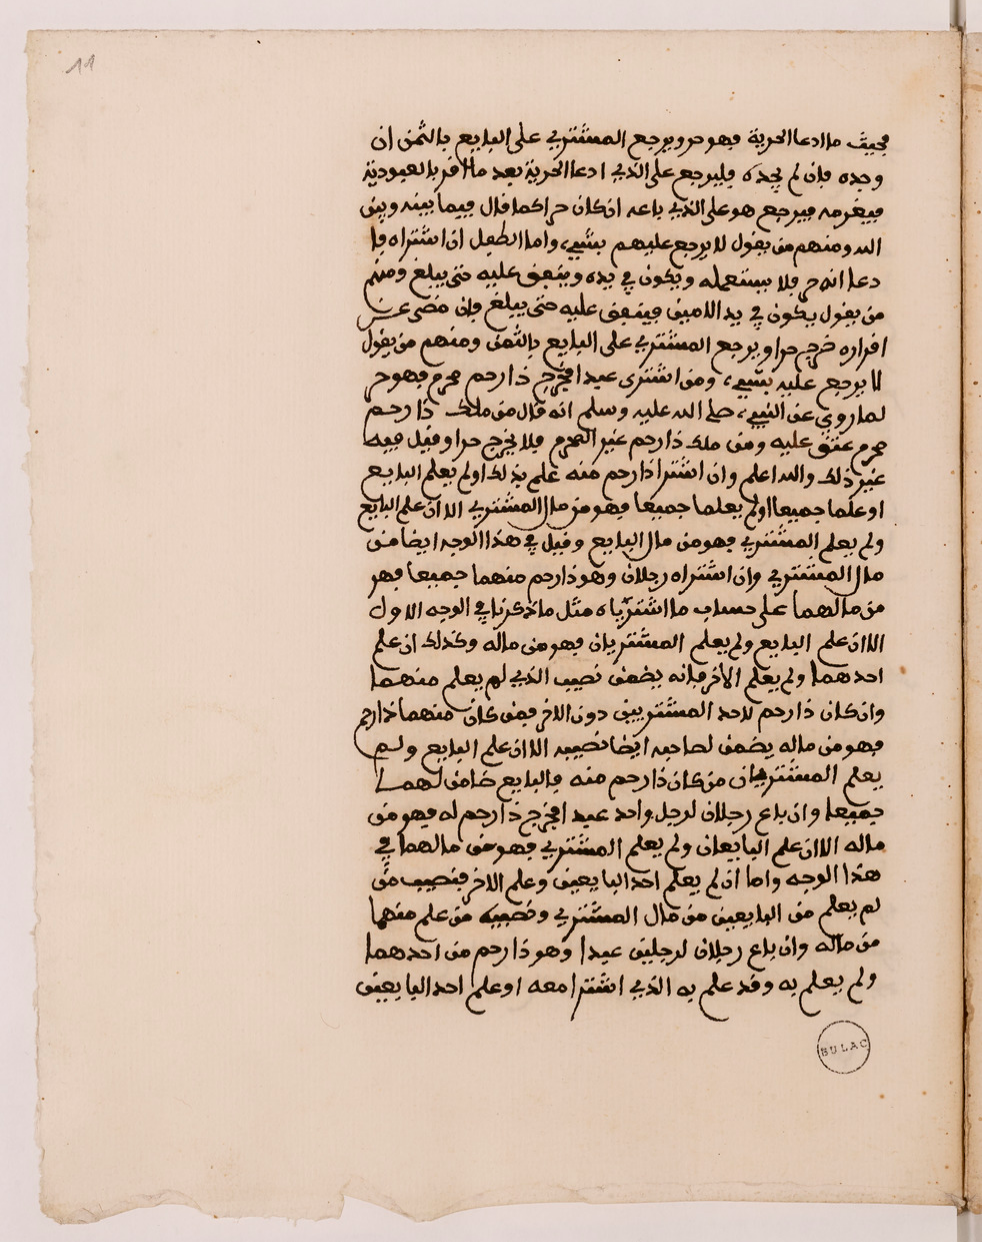 11
فحيث ما ادعا الحرية فهو حر ويرجع المشتري على البايع بالثمن ان
وجده فإن لم يجده فليرجع على الذي ادعا الحرية بعد ما اقر بالعبودية
فيغرمه فيرجع هو على الذي باعه ان كان حرا كما قال فيما بينه وبين
الله ومنهم من يقول لا يرجع عليهم بشيء، واما الطفل ان اشتراه فا
دعا انه حر فلا يستعمله ويكون في يده وينفق عليه حتى يبلغ ومنهم
من يقول يكون في يد الامين فينفق عليه حتى يبلغ فإن مضى عن
اقراره خرج حرا ويرجع المشتري على البايع بالثمن ومنهم من يقول
لا يرجع عليه بشيء، ومن اشترى عبدا فخرج ذا رحم محرم فهو حر
لما روي عن النبيء، صلى الله عليه وسلم انه قال من ملك ذا رحم
محرم عتق عليه ومن ملك ذا رحم غير المحرم فلا يخرج حرا وقيل فيه
غير ذلك والله اعلم وان اشترا ذا رحم منه علم بذلك او لم يعلم البايع
او علما جميعا او لم يعلما جميعا فهو من مال المشتري الا ان علم البايع
ولم يعلم المشتري فهو من مال البايع وقيل في هذا الوجه ايضا من
مال المشتري وان اشتراه رجلان وهو ذا رحم منهما جميعا فهو
من مالهما على حساب ما اشترياه مثل ما ذكرنا في الوجه الاول
الا ان علم البايع ولم يعلم المشتريان فهو من ماله وكذلك ان علم
احدهما ولم يعلم الاخر فانه يضمن نصيب الذي لم يعلم منهما
وان كان ذا رحم لاحد المشتريين دون الاخر فمن كان منهما ذا رحم
فهو من ماله يضمن لصاحبه ايضا نصيبه الا ان علم البايع ولم
يعلم المشتريان من كان ذا رحم منه فالبايع ضامن لهما
جميعا وان باع رجلان لرجل واحد عبدا فخرج ذا رحم له فهو من
ماله الا ان علم البايعان ولم يعلم المشتري فهو من مالهما في
هذا الوجه واما ان لم يعلم احد البايعين وعلم الاخر فنصيب من
لم يعلم من البايعين من مال المشتري ونصيبه من علم منهما
من ماله وان باع رجلان لرجلين عبدا وهو ذا رحم من احدهما
ولم يعلم به وقد علم به الذي اشترا معه او علم احد البايعين
BULAC